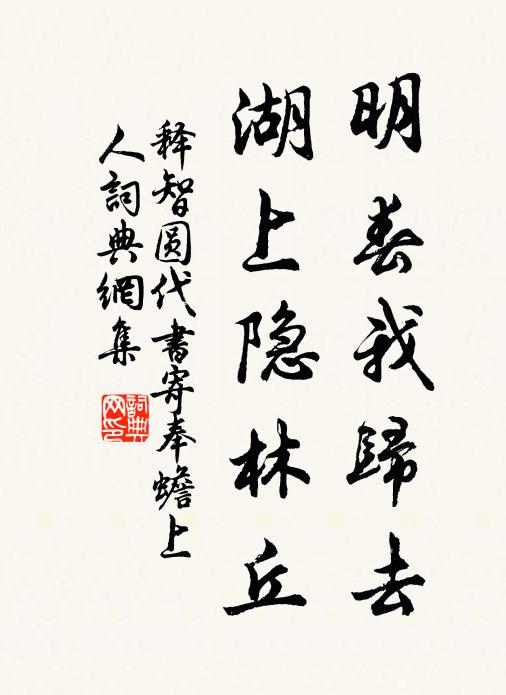 明春我歸去
湖上隐林丘
释智圆代書寄奉蟾上
人詞典網集
詞典
网印